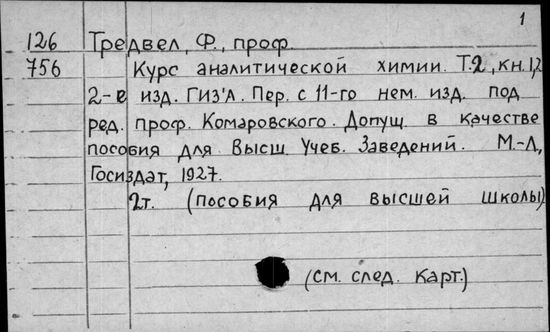 1
126 Тредвел, Ф., проф.
756 Курс аналитической химии. Т.2, кн. 1,2
2-е изд. ГИЗ'А. Пер. с 11-го нем. изд. под
ред. проф. Комаровского. Допущ. в качестве
пособия для Высш. Учеб. Заведений. М.-Л,
Госиздат, 1927.
2т. (пособия для высшей школы)
(см. след. карт.)